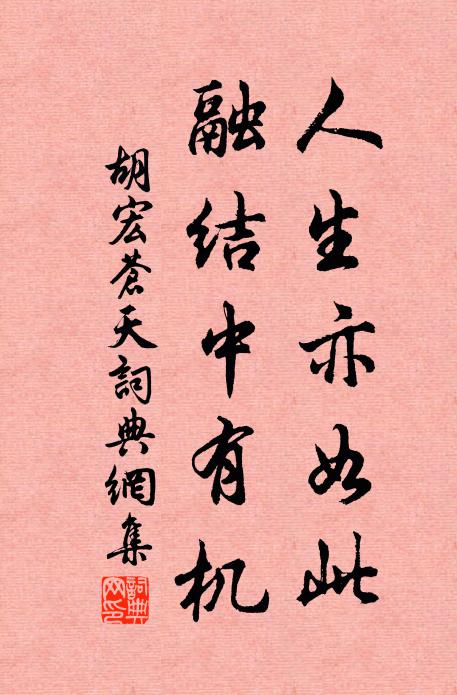 人生亦如此
融结中有机
胡宏蒼天詞典網集
詞典网印